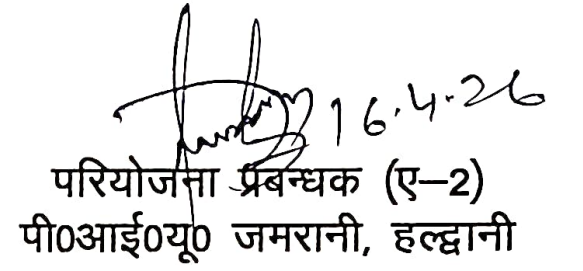 16.4.26
परियोजना प्रबन्धक (ए–2)
पी0आई0यू0 जमरानी, हल्द्वानी